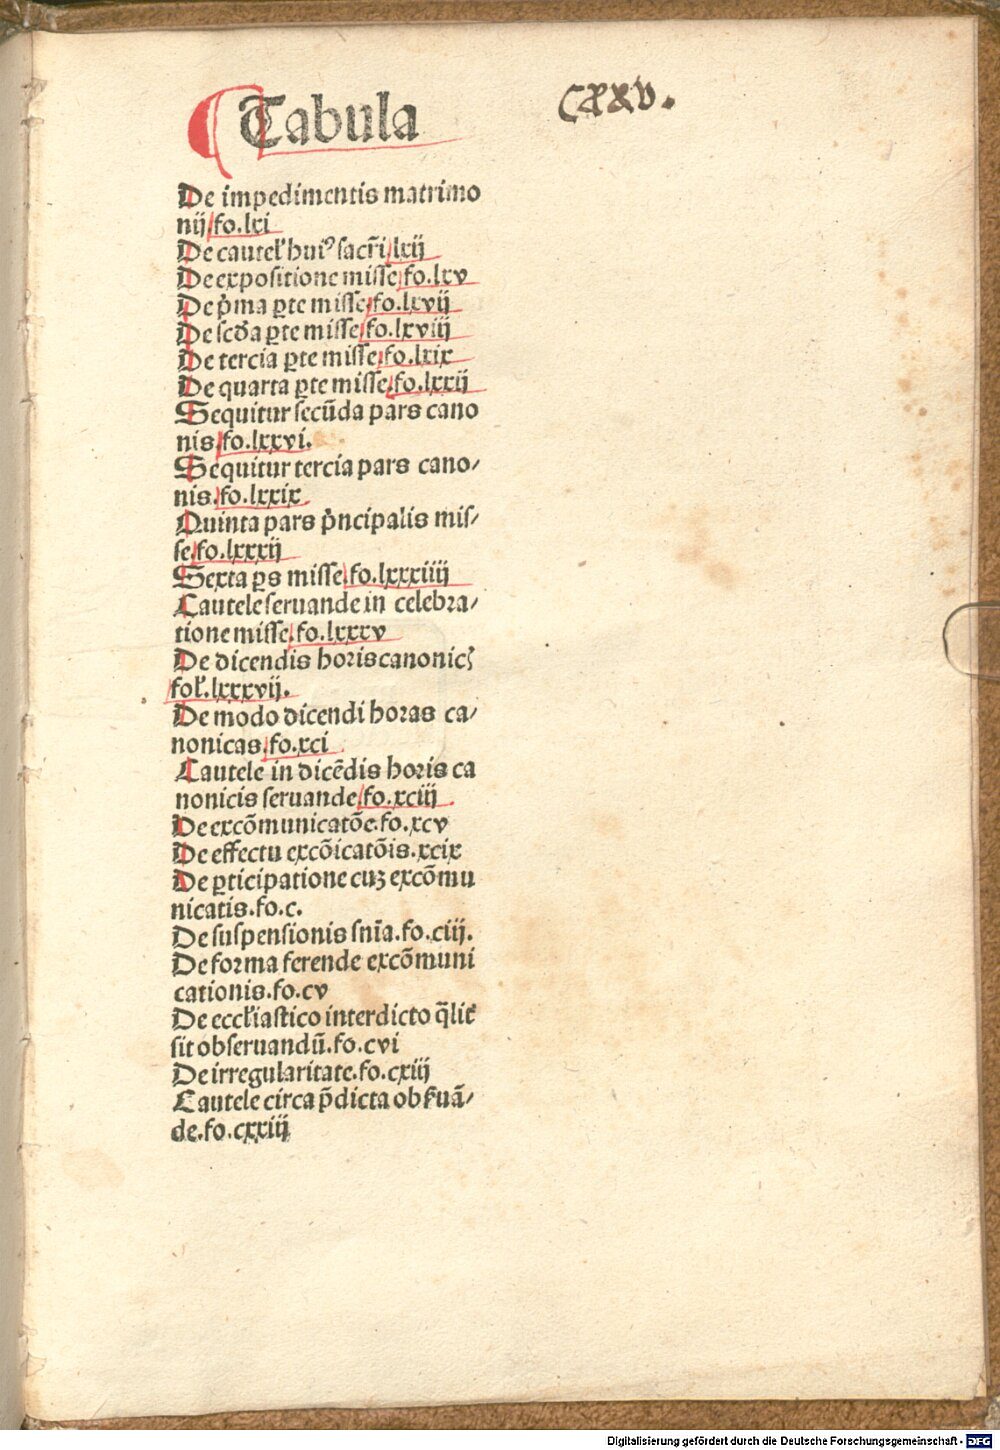 Tabula
Cxxv.
De impedimentis matrimo
nij fo.lxi
De cautel̛ huiꝰ sacr̄i lxij
De expositione misse fo.lxv
De p̄ma ꝑte misse fo.lxvij
De scd̄a ꝑte misse fo.lxviij
De tercia ꝑte misse fo.lxix
De quarta ꝑte misse fo.lxxij
Sequitur secūda pars cano
nis fo.lxxvi.
Sequitur tercia pars cano/
nis.fo.lxxix
Quinta pars p̄ncipalis mis/
se fo.lxxxij
Sexta ꝑs misse fo.lxxxiiij
Cautele seruande in celebra/
tione misse fo.lxxxv
De dicendis horis canonicꝭ
fol̛.lxxxvij.
De modo dicendi horas ca/
nonicas fo.xci
Cautele in dicēdis horis ca
nonicis seruande fo.xciij
De excōmunicatōe.fo.xcv
De effectu excōicatōis.xcix
De ꝑticipatione cuꝫ excōmu
nicatis.fo.c.
De suspensionis snīa.fo.ciij.
De forma ferende excōmuni
cationis.fo.cv
De eccl̛iastico interdicto q̄lit̛
sit obseruandū.fo.cvi
De irregularitate.fo.cxiij
Cautele circa p̄dicta obẜuā/
de.fo.cxxiij
Digitalisierung gefördert durch die Deutsche Forschungsgemeinschaft - DFG